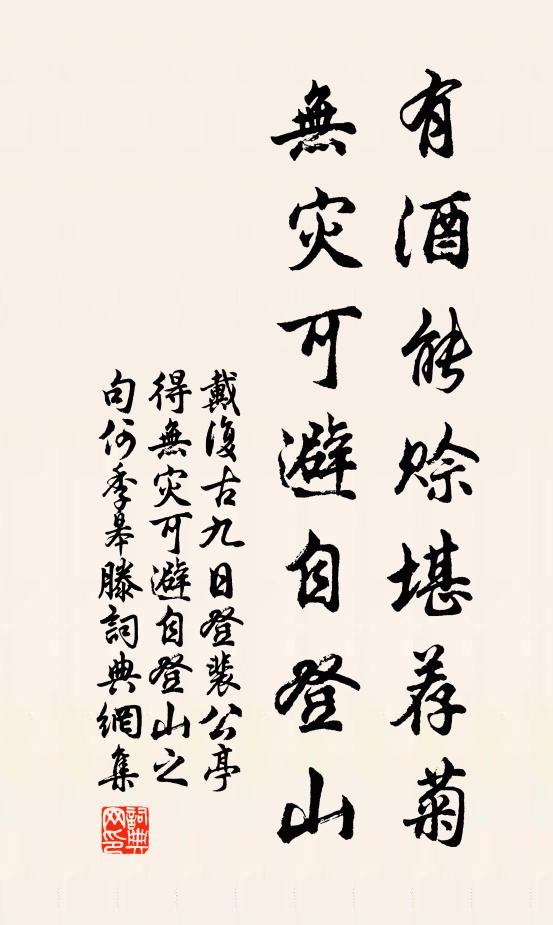 有酒能赊堪荐菊
無灾可避自登山
戴復古九日登裴公亭
得無灾可避自登山之
句何季皋滕詞典網集
詞典
网印